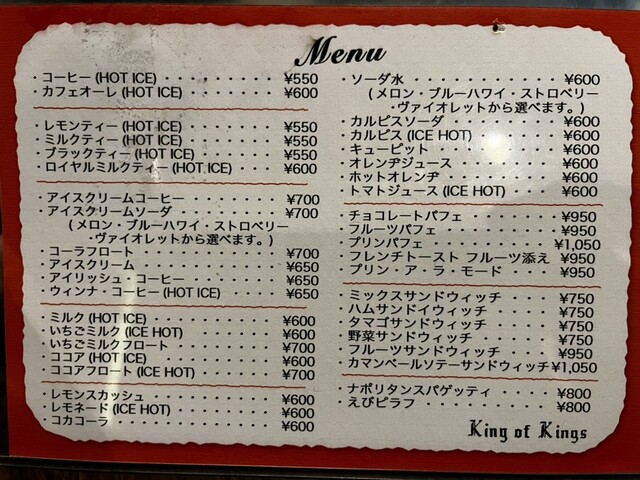 Menu
・コーヒー (HOT ICE) ・・・・・・・・・ ¥550
・カフェオーレ (HOT ICE) ・・・・・・・ ¥600
・レモンティー (HOT ICE) ・・・・・・・ ¥550
・ミルクティー (HOT ICE) ・・・・・・・ ¥550
・ブラックティー (HOT ICE) ・・・・・・ ¥550
・ロイヤルミルクティー (HOT ICE) ・・・ ¥600
・アイスクリームコーヒー ・・・・・・・ ¥700
・アイスクリームソーダ ・・・・・・・・ ¥700
(メロン・ブルーハワイ・ストロベリー
・ヴァイオレットから選べます。)
・コーラフロート ・・・・・・・・・・・ ¥700
・アイスクリーム ・・・・・・・・・・・ ¥650
・アイリッシュ・コーヒー ・・・・・・・ ¥650
・ウィンナ・コーヒー (HOT ICE) ・・・・ ¥650
・ミルク (HOT ICE) ・・・・・・・・・・ ¥600
・いちごミルク (ICE HOT) ・・・・・・・ ¥600
・いちごミルクフロート ・・・・・・・・ ¥700
・ココア (HOT ICE) ・・・・・・・・・・ ¥600
・ココアフロート (ICE HOT) ・・・・・・ ¥700
・レモンスカッシュ ・・・・・・・・・・ ¥600
・レモネード (ICE HOT) ・・・・・・・・ ¥600
・コカコーラ ・・・・・・・・・・・・・ ¥600
・ソーダ水 ・・・・・・・・・・・・・ ¥600
(メロン・ブルーハワイ・ストロベリー
・ヴァイオレットから選べます。)
・カルピスソーダ ・・・・・・・・・・ ¥600
・カルピス (ICE HOT) ・・・・・・・・ ¥600
・キューピット ・・・・・・・・・・・ ¥600
・オレンヂジュース ・・・・・・・・・ ¥600
・ホットオレンヂ ・・・・・・・・・・ ¥600
・トマトジュース (ICE HOT) ・・・・・ ¥600
・チョコレートパフェ ・・・・・・・・ ¥950
・フルーツパフェ ・・・・・・・・・・ ¥950
・プリンパフェ ・・・・・・・・・・・ ¥1,050
・フレンチトースト フルーツ添え ¥950
・プリン・ア・ラ・モード ・・・・・・ ¥950
・ミックスサンドウィッチ ・・・・・・ ¥750
・ハムサンドイィッチ ・・・・・・・・ ¥750
・タマゴサンドウィッチ ・・・・・・・ ¥750
・野菜サンドウィッチ ・・・・・・・・ ¥750
・フルーツサンドウィッチ ・・・・・・ ¥950
・カマンベールソテーサンドウィッチ ¥1,050
・ナポリタンスパゲッティ ・・・・・・ ¥800
・えびピラフ ・・・・・・・・・・・・ ¥800
King of Kings